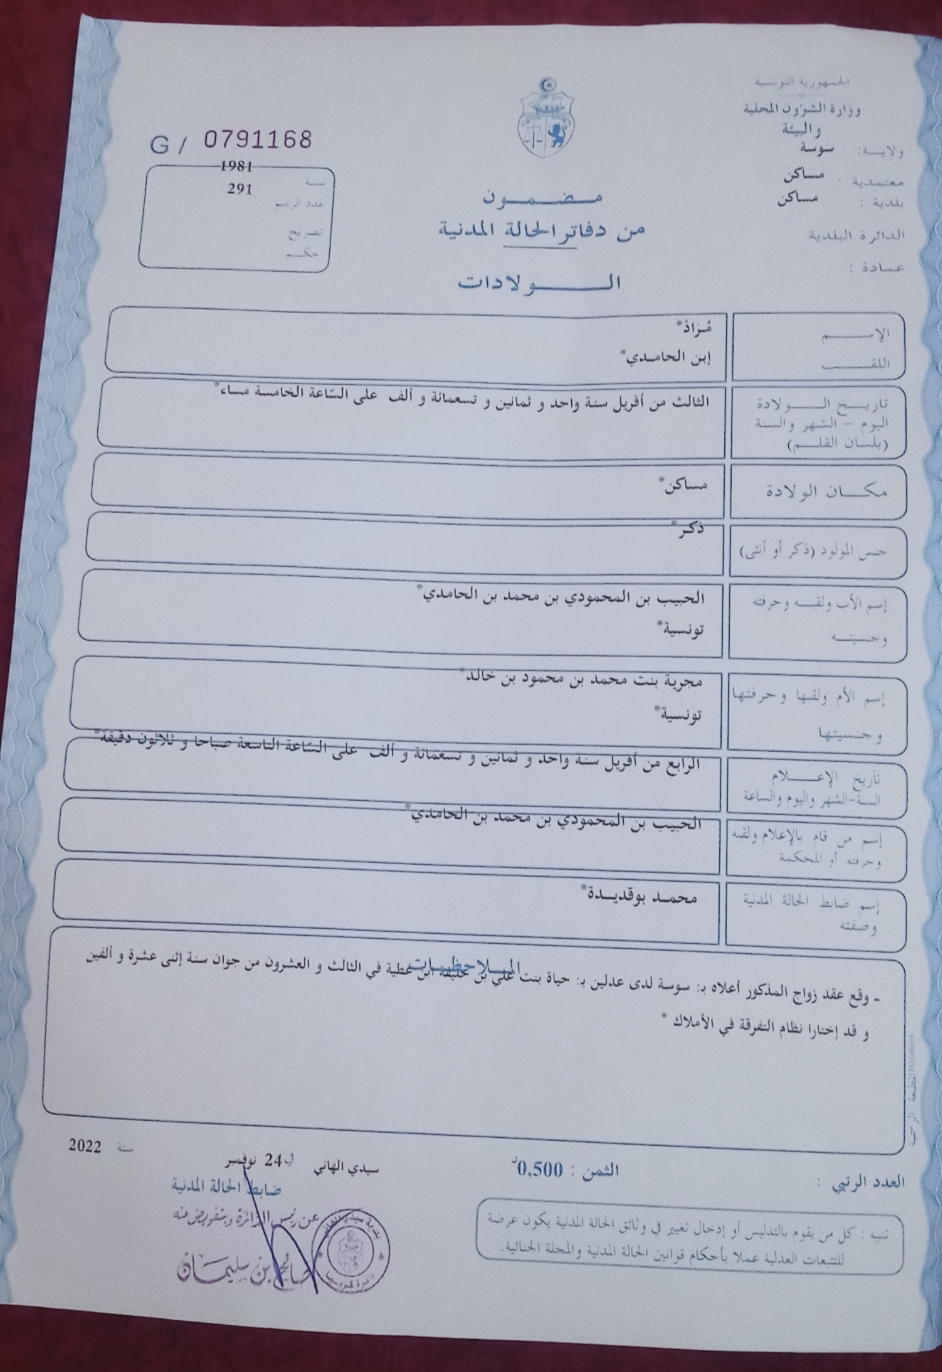 الجمهورية التونسية
وزارة الشؤون المحلية
والبيئة
ولاية: سوسة
معتمدية : مساكن
بلدية : مساكن
الدائرة البلدية
عمادة :
G / 0791168
سنة 1981
عدد الرسم 291
تصريح
حكم
مضمون
من دفاتر الحالة المدنية
الولادات
الإسم مُرَادْ*
اللقب إبن الحامدي*
تاريخ الولادة
اليوم - الشهر والسنة
(بلسان القلم)
الثالث من أفريل سنة واحد و ثمانين و تسعمائة و ألف على السّاعة الخامسة مساء*
مكان الولادة مساكن*
جنس المولود (ذكر أو أنثى) ذكر*
إسم الأب ولقبه وحرفته الحبيب بن المحمودي بن محمد بن الحامدي*
وجنسيته تونسية*
إسم الأم ولقبها وحرفتها مجرية بنت محمد بن محمود بن خالد*
وجنسيتها تونسية*
تاريخ الإعلام
السنة-الشهر واليوم والساعة
الرابع من أفريل سنة واحد و ثمانين و تسعمائة و ألف على السّاعة التاسعة صباحا و ثلاثون دقيقة*
إسم من قام بالإعلام ولقبه
وحرفته أو المحكمة
الحبيب بن المحمودي بن محمد بن الحامدي*
إسم ضابط الحالة المدنية
وصفته
محمد بوقديدة*
الملاحظات
- وقع عقد زواج المذكور أعلاه بـ: سوسة لدى عدلين بـ: حياة بنت علي بن خليفة ابن عطية في الثالث و العشرون من جوان سنة إثنى عشرة و ألفين
و قد إختارا نظام التفرقة في الأملاك *
العدد الرتبي :
الثمن : 0,500د
سيدي الهاني في 24 نوفمبر سنة 2022
ضابط الحالة المدنية
عن رئيس الدائرة وبتفويض منه
صالح بن سليمان
تنبيه : كل من يقوم بالتدليس أو إدخال تغيير في وثائق الحالة المدنية يكون عرضة
للتتبعات العدلية عملا بأحكام قوانين الحالة المدنية والمجلة الجنائية.